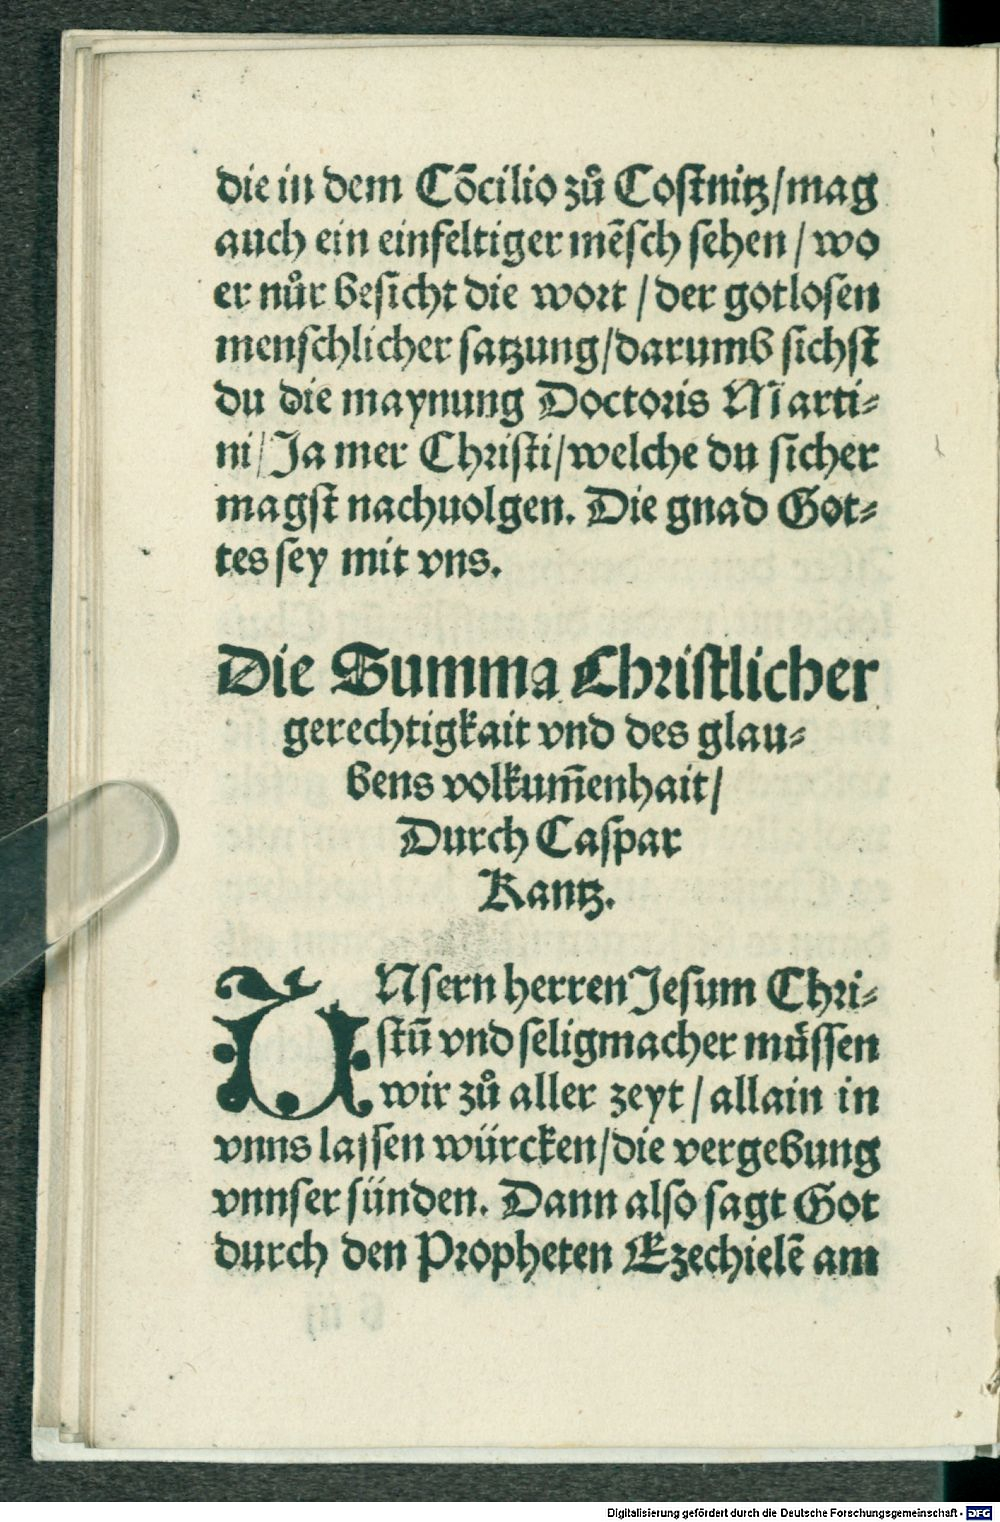 die in dem Cõcilio zů Costnitz/mag
auch ein einfeltiger mẽsch sehen / wo
er nůr besicht die wort / der gotlosen
menschlicher satzung/darumb sichst
du die maynung Doctoris Marti⸗
ni/Ja mer Christi/welche du sicher
magst nachuolgen. Die gnad Got⸗
tes sey mit vns.
Die Summa Christlicher
gerechtigkait vnd des glau⸗
bens volkum̃enhait/
Durch Caspar
Kantz.
UNsern herren Jesum Chri⸗
stũ vnd seligmacher müssen
wir zů aller zeyt / allain in
vnns lassen würcken/die vergebung
vnnser sünden. Dann also sagt Got
durch den Propheten Ezechielẽ am
Digitalisierung gefördert durch die Deutsche Forschungsgemeinschaft - DFG